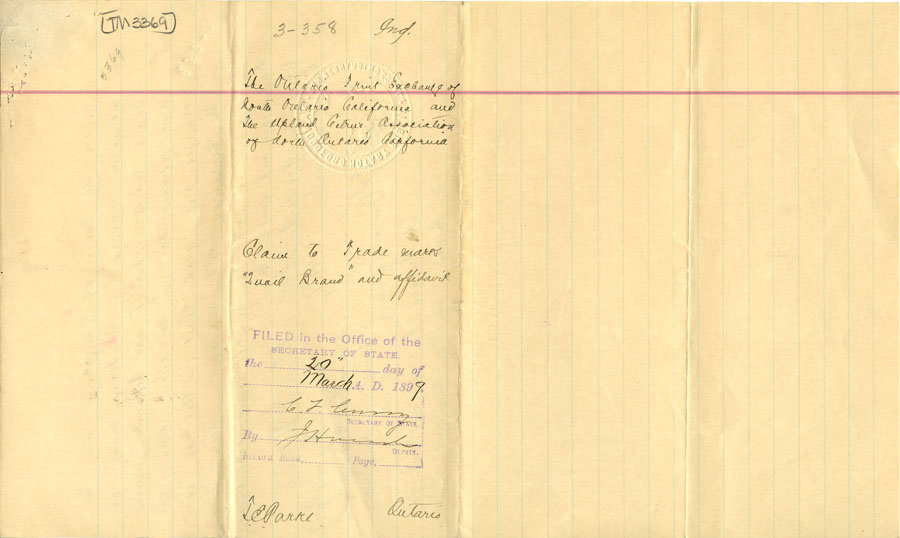 TM3369
3-358 Ind.
3369
The Ontario Fruit Exchange of
North Ontario California and
The Upland Citrus Association
of North Ontario California
Claim to Trade mark
"Quail Brand" and affidavit
FILED in the Office of the
SECRETARY OF STATE.
the 20" day of
March A. D. 1899.
C F Curry
SECRETARY OF STATE.
By J
DEPUTY.
Record Book Page
T. E. Parke Ontario